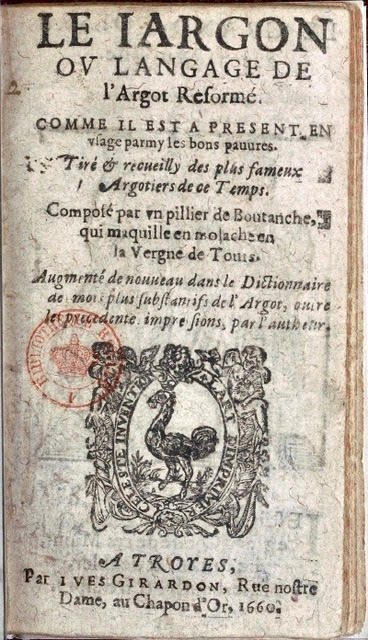 LE IARGON
OV LANGAGE DE
l'Argot Reformé.
COMME IL EST A PRESENT EN
vſage parmy les bons pauures.
Tiré & recueilly des plus fameux
Argotiers de ce Temps.
Compoſé par vn pillier de Boutanche,
qui maquille en molache en
la Vergne de Tours.
Augmenté de nouueau dans le Dictionnaire
de mots plus ſubſtantifs de l'Argot, outre
les precedente impreſsions, par l'autheur.
CELESTE INVENTION L'ART D'IMPRIMER
A TROYES,
Par IVES GIRARDON, Rue noſtre
Dame, au Chapon d'Or, 1660.